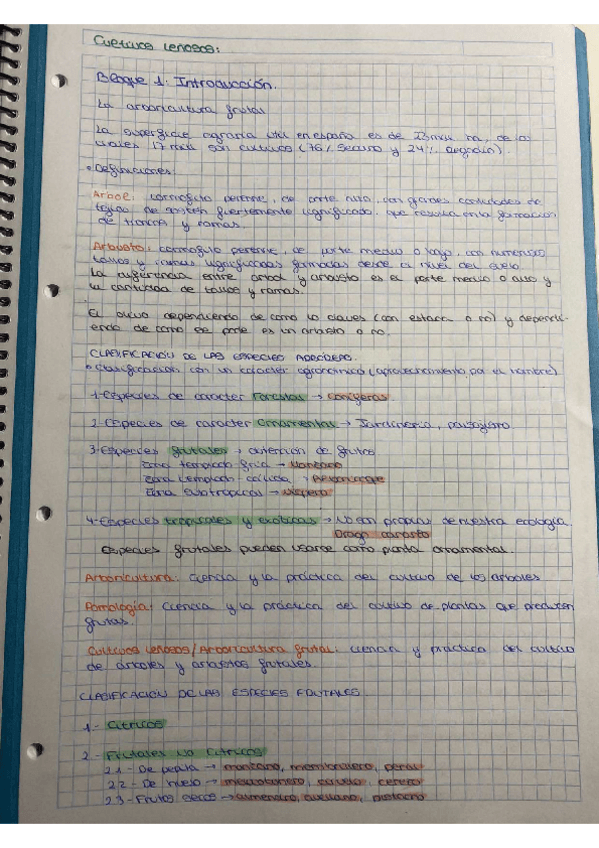 Cultivos Leñosos:
Bloque 1: Introducción.
La arboricultura frutal
La superficie agraria util en españa es de 23 mill ha, de los
cuales 17 mill son cultivos (76% Secano y 24% Regadío).
• Definiciones:
Arbol: cormofito perenne, de porte alto, con grandes cantidades de
tejido de sostén fuertemente lignificado, que resulta en la formación
de troncos y ramas.
Arbusto: cormofito perenne, de porte medio o bajo, con numerosos
tallos y ramas lignificadas formadas desde el nivel del suelo.
La diferencia entre arbol y arbusto es el porte medio o alto y
la cantidad de tallos y ramas.
El olivo dependiendo de como lo claves (con estaca o no) y dependi-
endo de como se pode es un arbusto o no.
CLASIFICACIÓN DE LAS ESPECIES ARBÓREAS.
• Clasificación con un carácter agronómico (aprovechamiento por el hombre)
1-Especies de carácter Forestal → coníferas
2-Especies de carácter Ornamental → Jardinería, paisajismo
3-Especies frutales → obtención de frutos
Zona templada fría → Manzano
Zona templada cálida →
Zona Subtropical → Níspero
4-Especies tropicales y exóticas → No son propias de nuestra ecología.
Drago canario
Especies frutales pueden usarse como planta ornamental.
Arboricultura: Ciencia y la práctica del cultivo de los árboles
Pomología: Ciencia y la práctica del cultivo de plantas que producen
frutas.
Cultivos Leñosos/Arboricultura frutal: ciencia y práctica del cultivo
de árboles y arbustos frutales.
CLASIFICACIÓN DE LAS ESPECIES FRUTALES.
1- Cítricos
2- Frutales No Cítricos
2.1- De pepita → manzano, membrillero, peral
2.2- De hueso → melocotonero, ciruelo, cerezo
2.3- Frutos secos → almendro, avellano, pistacho